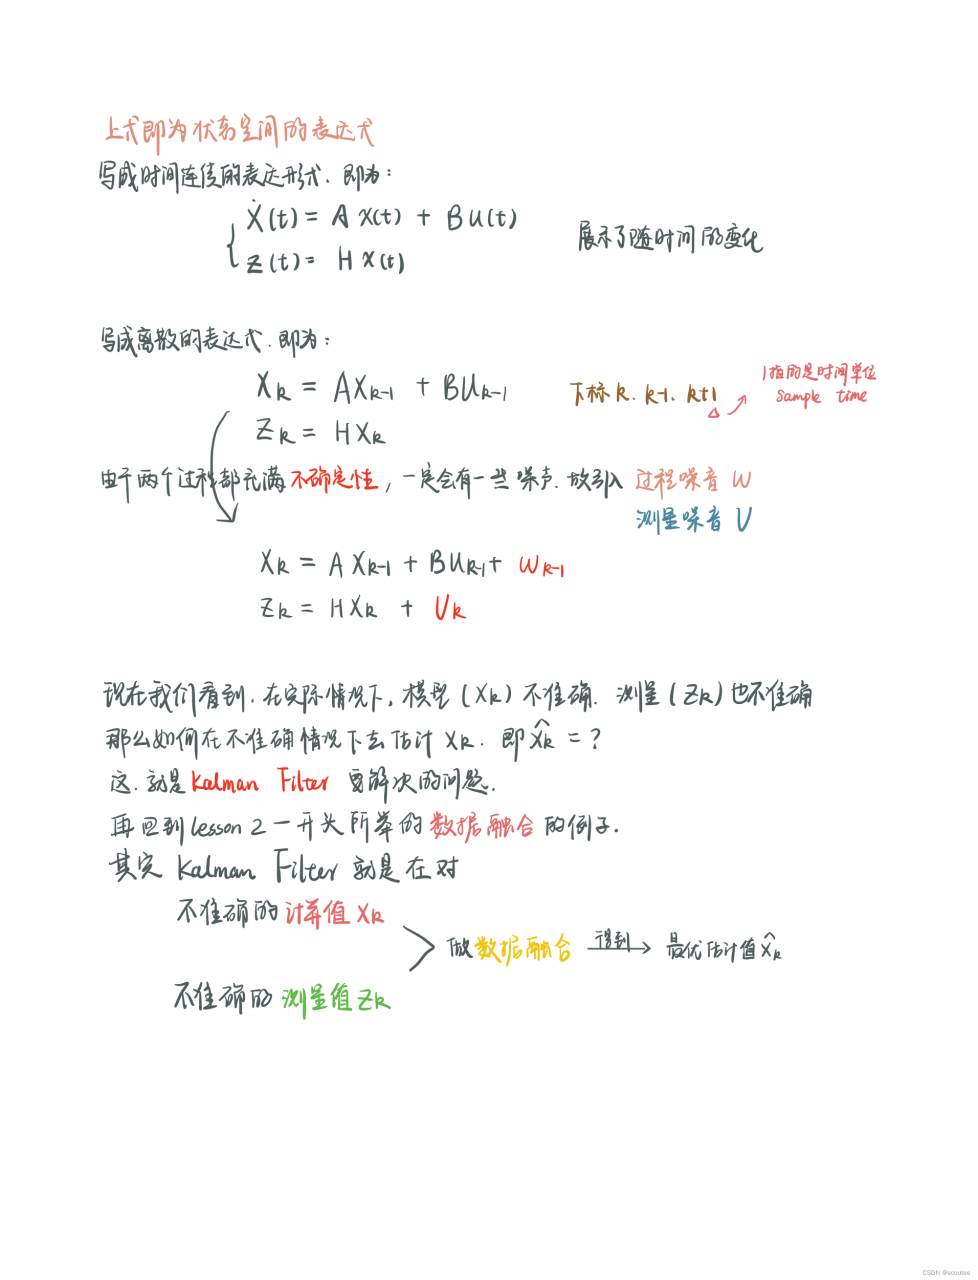 上式即为状态空间的表达式
写成时间连续的表达形式. 即为:
Ẋ(t) = A x(t) + B u(t)
Z(t) = H x(t)
展示了随时间的变化
写成离散的表达式. 即为:
Xk = AXk-1 + BUk-1
Zk = HXk
下标 k. k-1. k+1
1指的是时间单位
sample time
由于两个过程都充满不确定性, 一定会有一些噪声. 故引入 过程噪音 W
测量噪音 V
Xk = A Xk-1 + BUk-1 + Wk-1
Zk = HXk + Vk
现在我们看到. 在实际情况下, 模型 (Xk) 不准确. 测量 (Zk) 也不准确
那么如何在不准确情况下去估计 Xk. 即 X̂k = ?
这. 就是 Kalman Filter 要解决的问题.
再回到 lesson 2 一开头所举的 数据融合 的例子.
其实 Kalman Filter 就是在对
不准确的 计算值 Xk
做 数据融合 得到 → 最优估计值 X̂k
不准确的 测量值 Zk